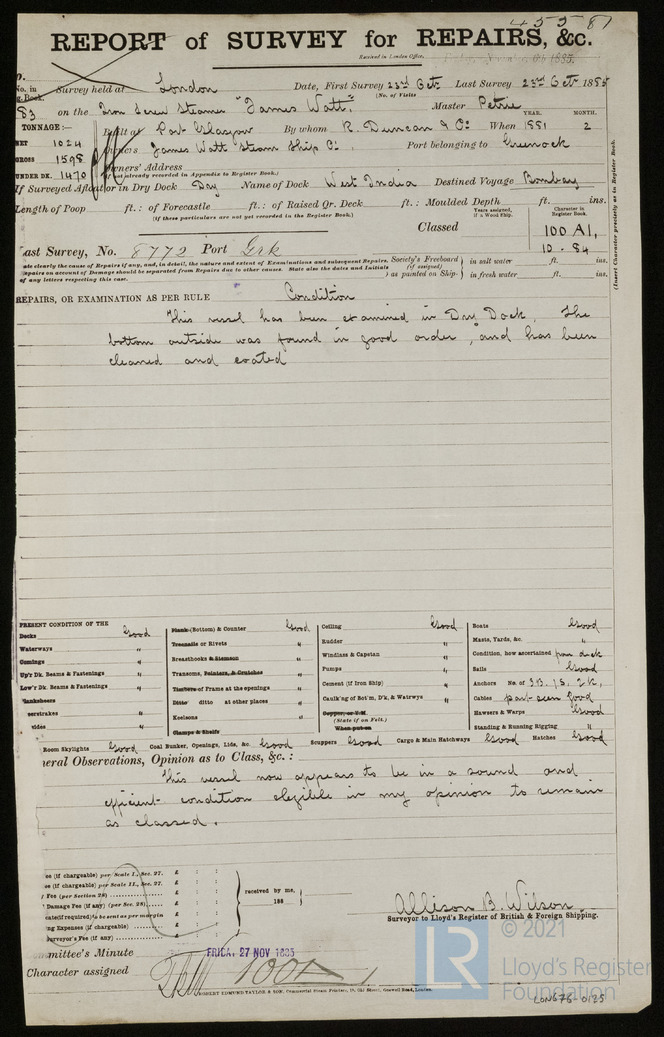 45587
REPORT of SURVEY for REPAIRS, &c.
Received in London Office,
No. in Survey held at London Date, First Survey 23rd Oct Last Survey 23rd Oct 1885
Reg. Book. (No. of Visits
83 on the Iron Screw Steamer "James Watt" Master Petrie
TONNAGE:— Built at Port Glasgow By whom R. Duncan & Co When 1881 2
YEAR. MONTH.
NET 1024 Owners James Watt Steam Ship Co. Port belonging to Greenock
GROSS 1598 Owners' Address
UNDER DK. 1470 (if not already recorded in Appendix to Register Book.)
If Surveyed Afloat or in Dry Dock Dry Name of Dock West India Destined Voyage Bombay
Length of Poop ft.: of Forecastle ft.: of Raised Qr. Deck ft.: Moulded Depth ft. ins.
(If these particulars are not yet recorded in the Register Book.)
Years assigned, if a Wood Ship.
Character in Register Book.
Classed 100 A1,
10 - 84
(Insert Character precisely as in Register Book.
Last Survey, No. 8772 Port Grk
state clearly the cause of Repairs if any, and, in detail, the nature and extent of Examinations and subsequent Repairs.
Repairs on account of Damage should be separated from Repairs due to other causes. State also the dates and Initials
of any letters respecting this case.
Society's Freeboard (if assigned) as painted on Ship- in salt water ft. ins.
in fresh water ft. ins.
REPAIRS, OR EXAMINATION AS PER RULE Condition
This vessel has been examined in Dry Dock. The
bottom outside was found in good order, and has been
cleaned and coated
PRESENT CONDITION OF THE
Decks Good
Waterways "
Comings "
Up'r Dk. Beams & Fastenings "
Low'r Dk. Beams & Fastenings "
Planksheers
Plank (Bottom) & Counter Good
Treenails or Rivets "
Breasthooks & Stemson "
Transoms, Pointers, & Crutches "
Timbers of Frame at the openings "
Ditto ditto at other places "
Keelsons "
Clamps & Shelfs
Ceiling Good
Rudder "
Windlass & Capstan "
Pumps "
Cement (if Iron Ship) "
Caulk'ng of Bot'm, D'k, & Watrwys "
Copper, or Y.M.
(State if on Felt.)
When put on
Boats Good
Masts, Yards, &c. "
Condition, how ascertained from deck
Sails Good
Anchors No. of 3B. 1S. 2K.
Cables part seen good
Hawsers & Warps Good
Standing & Running Rigging "
Room Skylights Good Coal Bunker, Openings, Lids, &c. Good Scuppers Good Cargo & Main Hatchways Good Hatches Good
General Observations, Opinion as to Class, &c.:
This vessel now appears to be in a sound and
efficient condition eligible in my opinion to remain
as classed.
(if chargeable) per Scale I., Sec. 27. £ : :
(if chargeable) per Scale II., Sec. 27. £ : :
Fee (per Section 28) £ : :
Damage Fee (if any) (per Sec. 28) £ : :
(if required) to be sent as per margin £ : :
Expenses (if chargeable) £ : :
Surveyor's Fee (if any) £ : :
received by me,
188
Allison B. Wilson
Surveyor to Lloyd's Register of British & Foreign Shipping.
Committee's Minute FRIDAY 27 NOV 1885
Character assigned 100A1
ROBERT EDMUND TAYLOR & SON, Commercial Steam Printers, 19, Old Street, Goswell Road, London.
LR
© 2021
Lloyd's Register
Foundation
LON676-0125